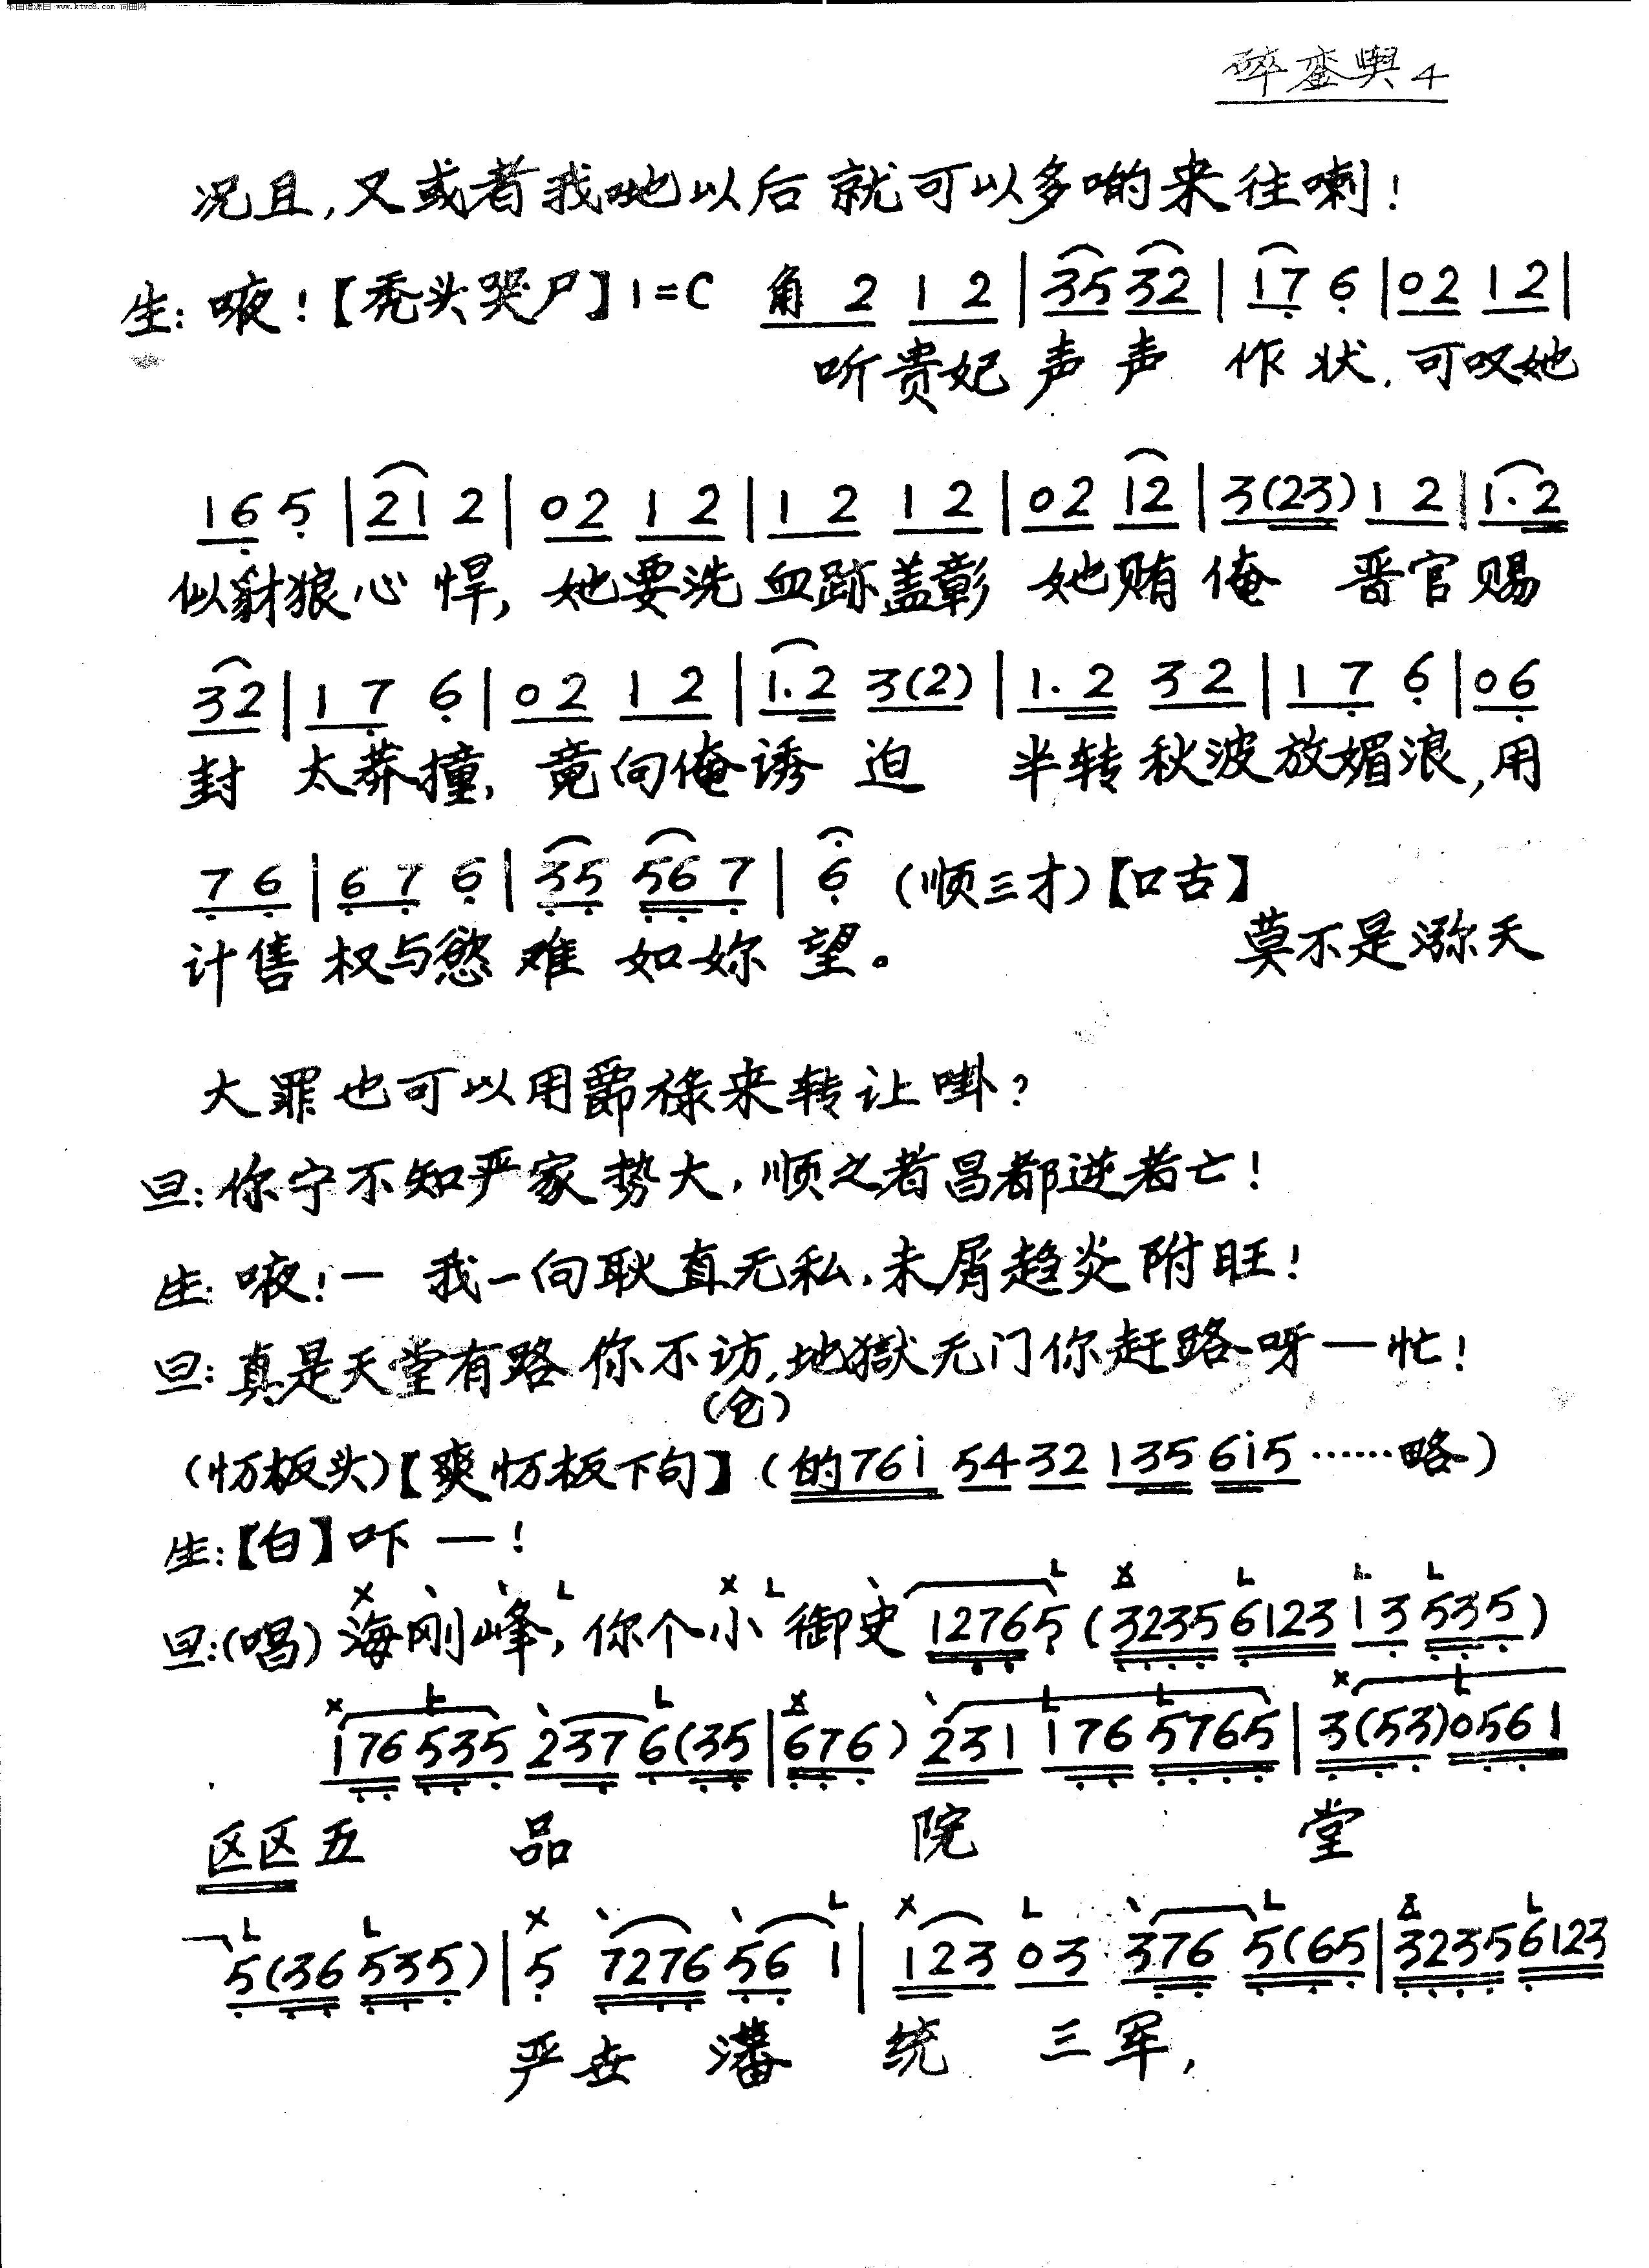 本曲谱源自 www.ktvc8.com 词曲网
碎銮舆4
况且,又或者我哋以后就可以多啲来往喇!
生: 㖡!【秃头哭尸】1=C 角 2 1 2 | 35 32 | 17 6 | 02 12 |
听贵妃声声 作状,可叹她
165 | 21 2 | 02 12 | 12 12 | 02 12 | 3(23) 12 | 1.2
似豺狼心悍,她要洗血跡盖彰 她贿俺 晋官赐
32 | 17 6 | 02 12 | 1.2 3(2) | 1.2 32 | 17 6 | 06
封 太莽撞,竟向俺诱迫 半转秋波放媚浪,用
76 | 67 6 | 35 567 | 6 (顺三才)【口古】
计售权与慾难如妳望。 莫不是㳽天
大罪也可以用爵禄来转让啩?
旦:你宁不知严家势大,顺之者昌都逆者亡!
生:㖡!一 我一向耿直无私,未屑趋炎附旺!
旦:真是天堂有路你不访,地獄无门你赶路呀一忙!
(仓)
(忟板头)【爽忟板下句】(的76i 5432 135 6i5 ……略)
生:【白】吓 一!
旦:(唱)海刚峰,你个小御史 12765 (3235 6123 13 535)
176 535 237 6(35 | 676) 231 176 5765 | 3(53)0561
区区五 品 院 堂
5(36 535) | 5 7276 56 1 | 123 03 376 5(65 | 3235 6123
严世 潘 统 三军,